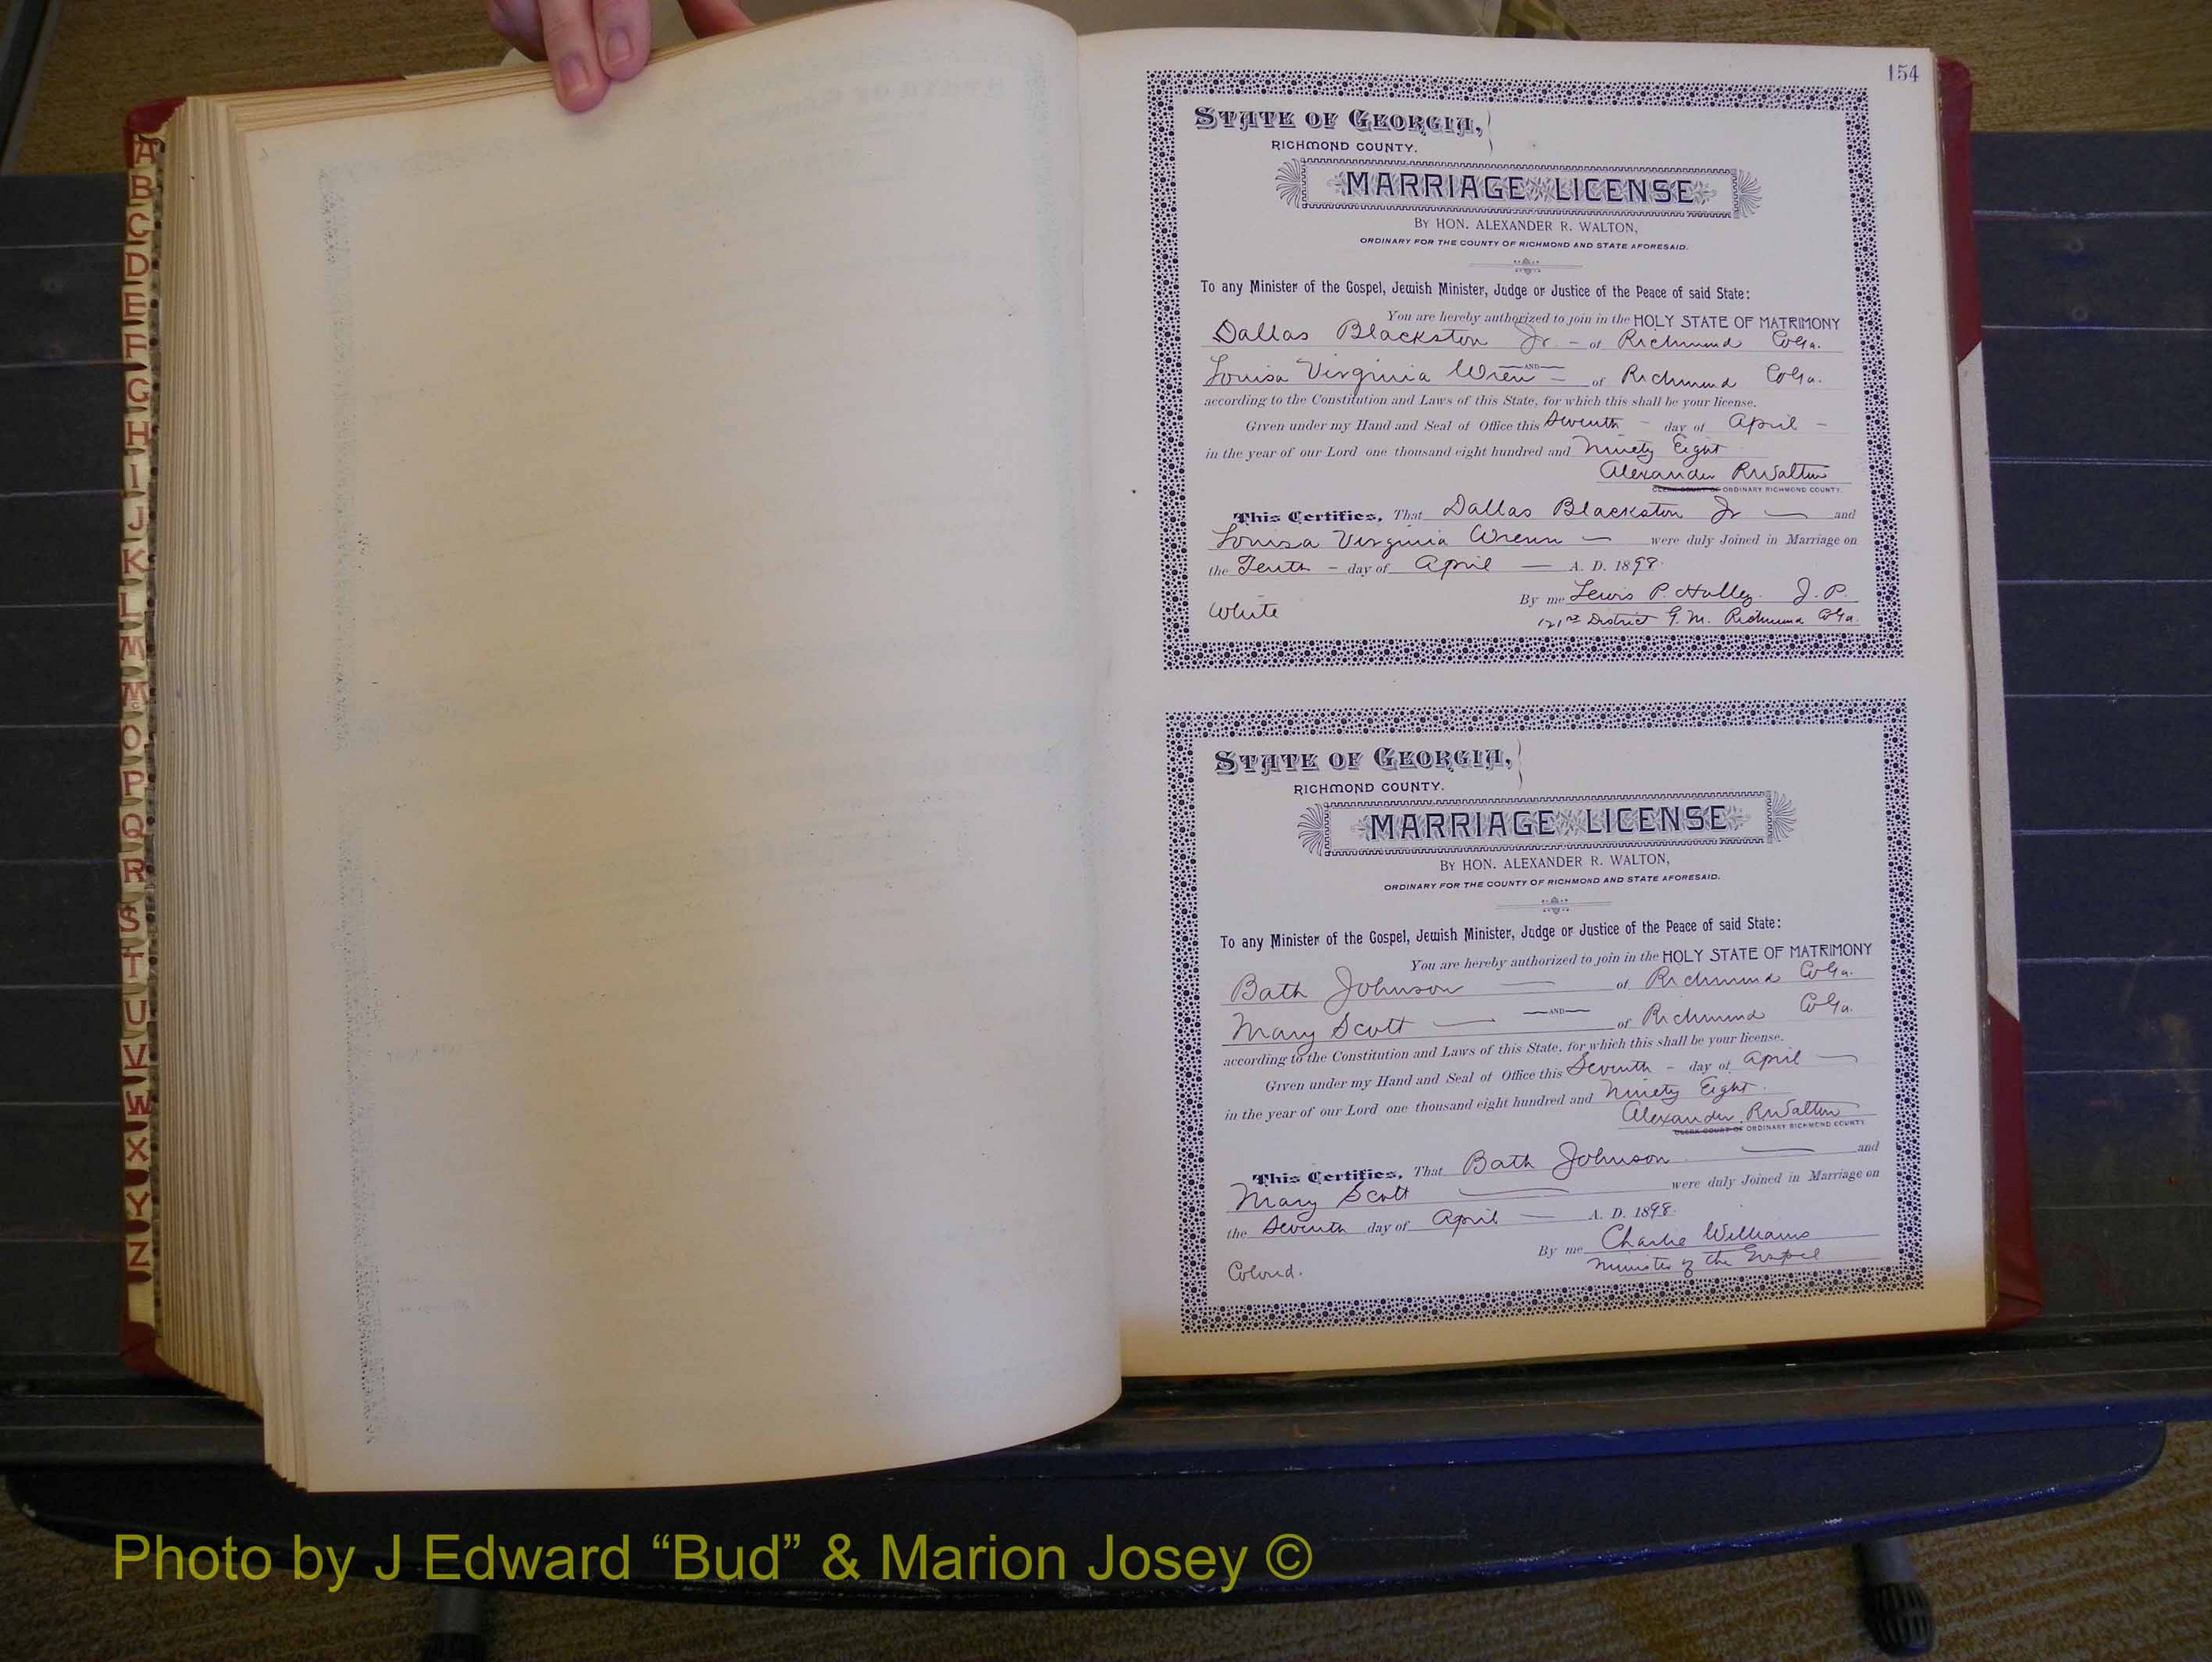 154
STATE OF GEORGIA,
RICHMOND COUNTY.
MARRIAGE LICENSE
BY HON. ALEXANDER R. WALTON,
ORDINARY FOR THE COUNTY OF RICHMOND AND STATE AFORESAID.
To any Minister of the Gospel, Jewish Minister, Judge or Justice of the Peace of said State:
You are hereby authorized to join in the HOLY STATE OF MATRIMONY
Dallas Blackston Jr - of Richmond Co Ga.
AND
Louisa Virginia Wren - of Richmond Co Ga.
according to the Constitution and Laws of this State, for which this shall be your license.
Given under my Hand and Seal of Office this Seventh - day of April -
in the year of our Lord one thousand eight hundred and Ninety Eight
Alexander R Walton
CLERK COURT OF ORDINARY RICHMOND COUNTY.
This Certifies, That Dallas Blackston Jr and
Louisa Virginia Wrenn were duly Joined in Marriage on
the Tenth - day of April A. D. 1898.
By me Lewis P. Holley J. P.
White 121st District G. M. Richmond Co Ga.
STATE OF GEORGIA,
RICHMOND COUNTY.
MARRIAGE LICENSE
BY HON. ALEXANDER R. WALTON,
ORDINARY FOR THE COUNTY OF RICHMOND AND STATE AFORESAID.
To any Minister of the Gospel, Jewish Minister, Judge or Justice of the Peace of said State:
You are hereby authorized to join in the HOLY STATE OF MATRIMONY
Bath Johnson of Richmond Co Ga.
AND
Mary Scott of Richmond Co Ga.
according to the Constitution and Laws of this State, for which this shall be your license.
Given under my Hand and Seal of Office this Seventh - day of April
in the year of our Lord one thousand eight hundred and Ninety Eight.
Alexander R Walton
CLERK COURT OF ORDINARY RICHMOND COUNTY
This Certifies, That Bath Johnson and
Mary Scott were duly Joined in Marriage on
the Seventh day of April A. D. 1898.
By me Charlie Williams
Colored. Minister of the Gospel
A
B
C
D
E
F
G
H
I
J
K
L
M
Mc
O
P
Q
R
S
T
U
V
W
X
Y
Z
Photo by J Edward “Bud” & Marion Josey ©